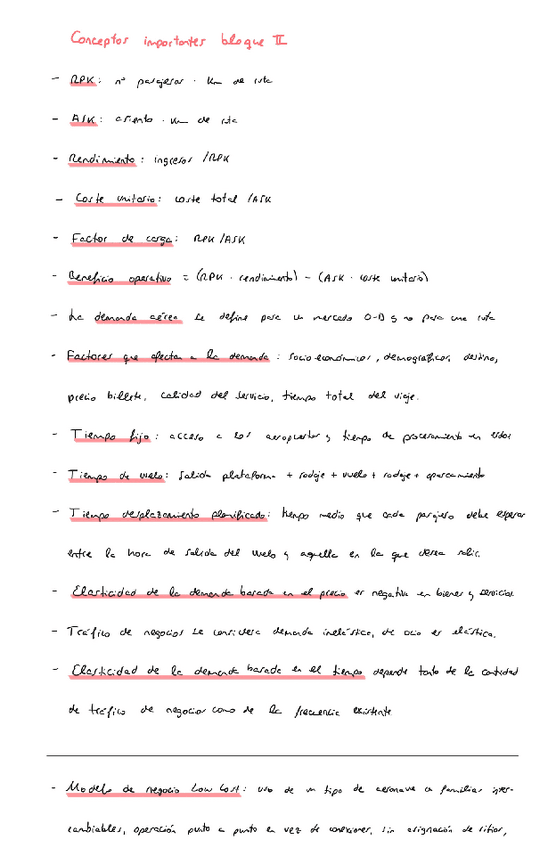 Conceptos importantes bloque II
- RPK: nº pasajeros · Km de ruta
- ASK: asiento · Km de ruta
- Rendimiento: ingresos /RPK
- Coste unitario: coste total /ASK
- Factor de carga: RPK/ASK
- Beneficio operativo = (RPK · rendimiento) - (ASK · coste unitario)
- La demanda aérea se define para un mercado O-D y no para una ruta
- Factores que afectan a la demanda: socio económicos, demográficos, destino,
precio billete, calidad del servicio, tiempo total del viaje.
- Tiempo fijo: acceso a los aeropuertos y tiempo de procesamiento en estos
- Tiempo de vuelo: salida plataforma + rodaje + vuelo + rodaje + aparcamiento
- Tiempo desplazamiento planificado: tiempo medio que cada pasajero debe esperar
entre la hora de salida del vuelo y aquella en la que desea salir.
- Elasticidad de la demanda basada en el precio es negativa en bienes y servicios
- Tráfico de negocios se considera demanda inelástica, de ocio es elástica.
- Elasticidad de la demanda basada en el tiempo depende tanto de la cantidad
de tráfico de negocios como de la frecuencia existente
- Modelo de negocio Low Cost: uso de un tipo de aeronave o familias inter-
cambiables, operación punto a punto en vez de conexiones, sin asignación de sitios,